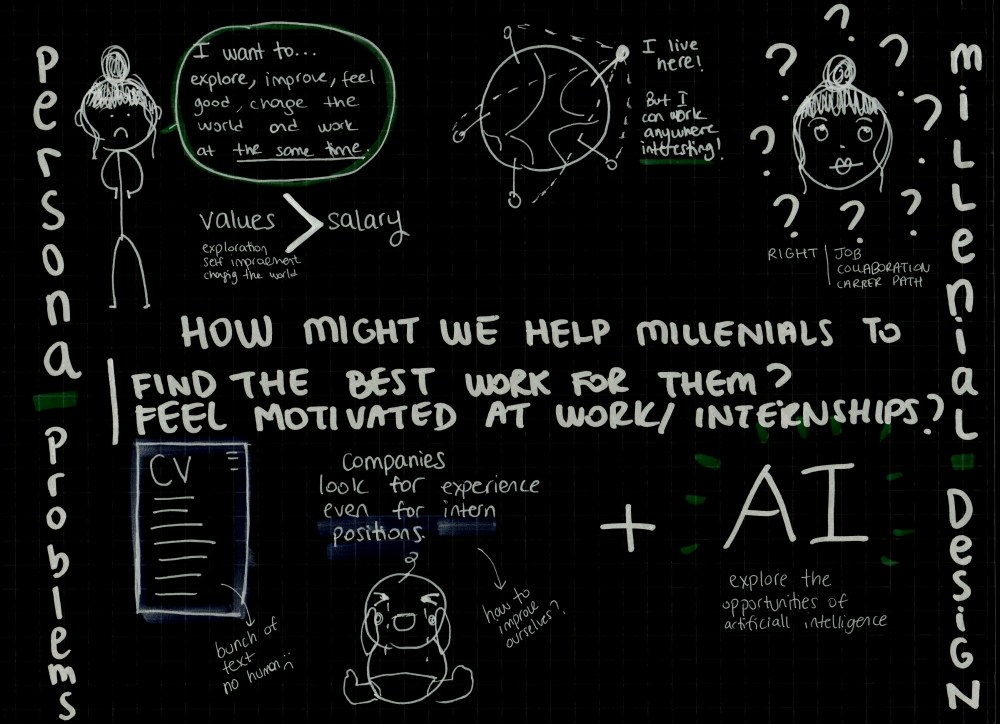 Persona Problems
I want to...
explore, improve, feel
good, change the
world and work
at the same time.
values > salary
exploration
self improvement
changing the world
I live
here!
But I
can work
anywhere
interesting!
? ? ? ? ? ? ? ? ?
RIGHT | JOB
COLLABORATION
CARRER PATH
MiLLeniaL DesiGN
HOW MIGHT WE HELP MILLENIALS TO
FIND THE BEST WORK FOR THEM?
FEEL MOTIVATED AT WORK/ INTERNSHIPS?
CV
bunch of
text
no human :(
Companies
look for experience
even for intern
positions.
how to
improve
ourselves?
+
AI
explore the
opportunities of
artificiall intelligence